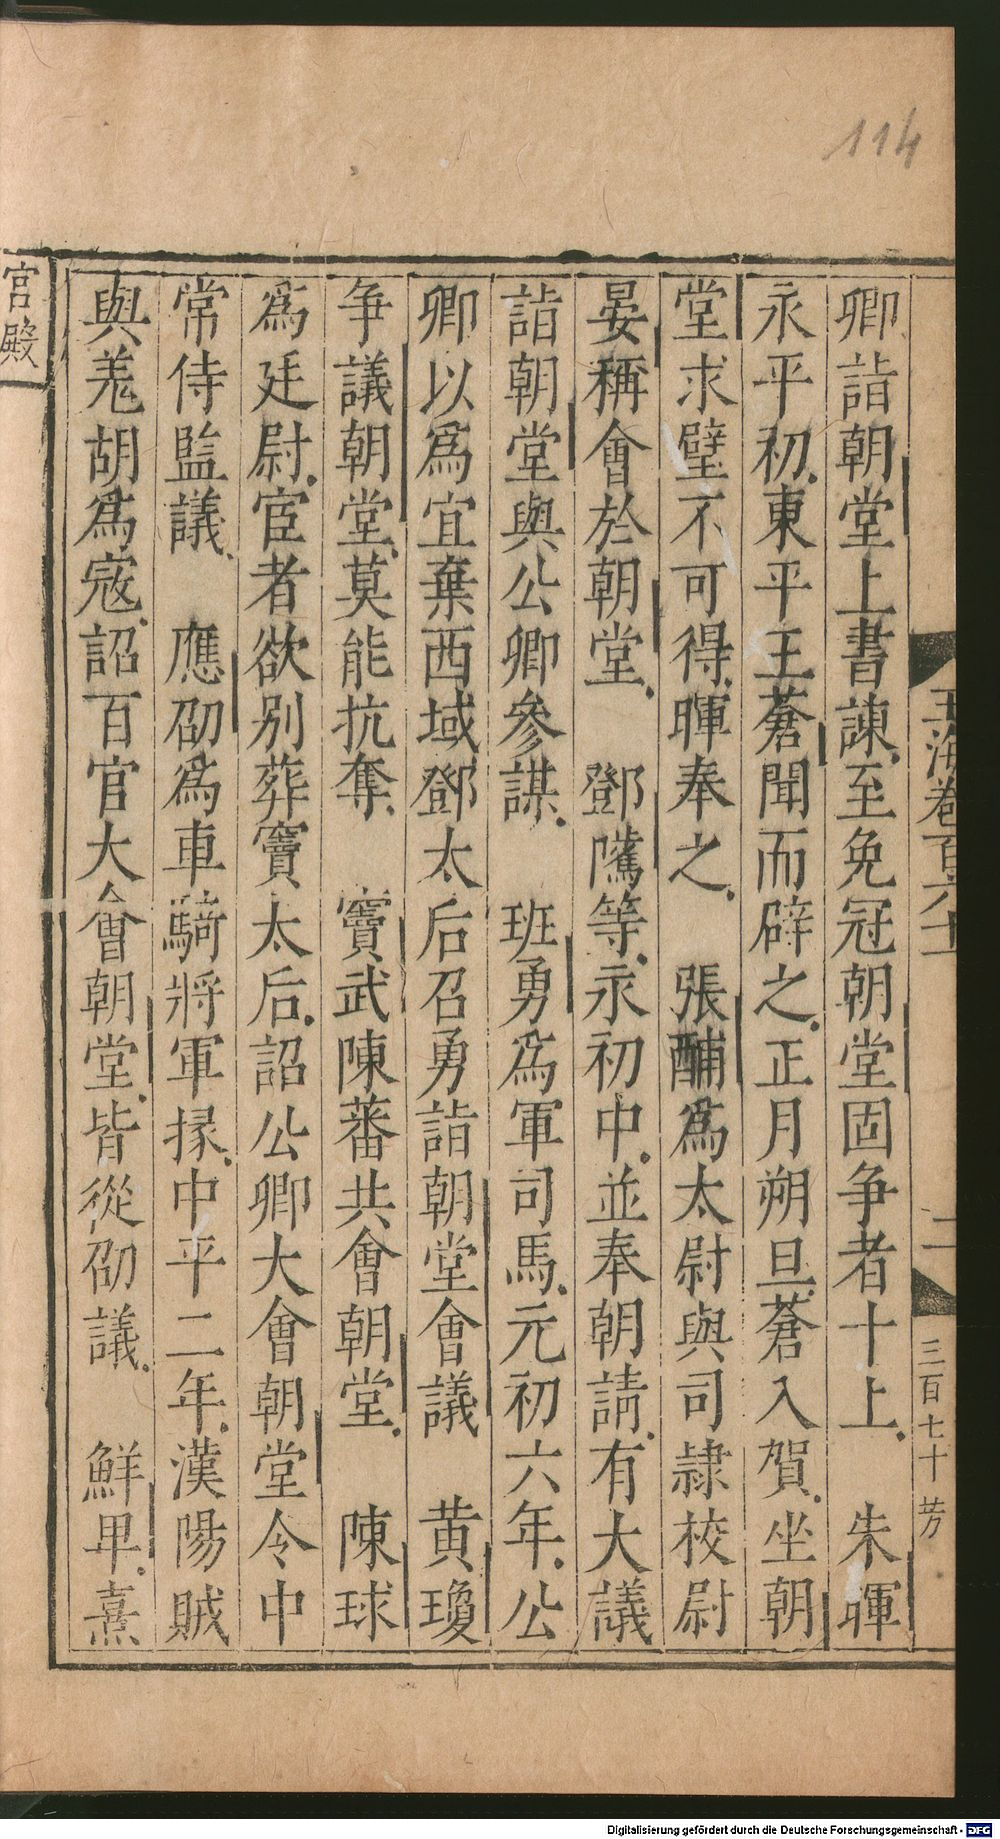 114
玉海卷百六十一
二
三百七十
芳
卿詣朝堂上書諫至免冠朝堂固争者十上　朱暉
永平初東平王蒼聞而辟之正月朔旦蒼入賀坐朝
堂求璧不可得暉奉之　張酺爲太尉與司隷校尉
晏稱會於朝堂　鄧騭等永初中並奉朝請有大議
詣朝堂與公卿參謀　班勇爲軍司馬元初六年公
卿以爲宜棄西域鄧太后召勇詣朝堂會議　黄瓊
争議朝堂莫能抗奪　竇武陳蕃共會朝堂　陳球
爲廷尉宦者欲别葬竇太后詔公卿大會朝堂令中
常侍監議　應劭爲車騎將軍掾中平二年漢陽賊
與羗胡爲寇詔百官大會朝堂皆從劭議　鮮卑熹
宮殿
Digitalisierung gefördert durch die Deutsche Forschungsgemeinschaft - DFG